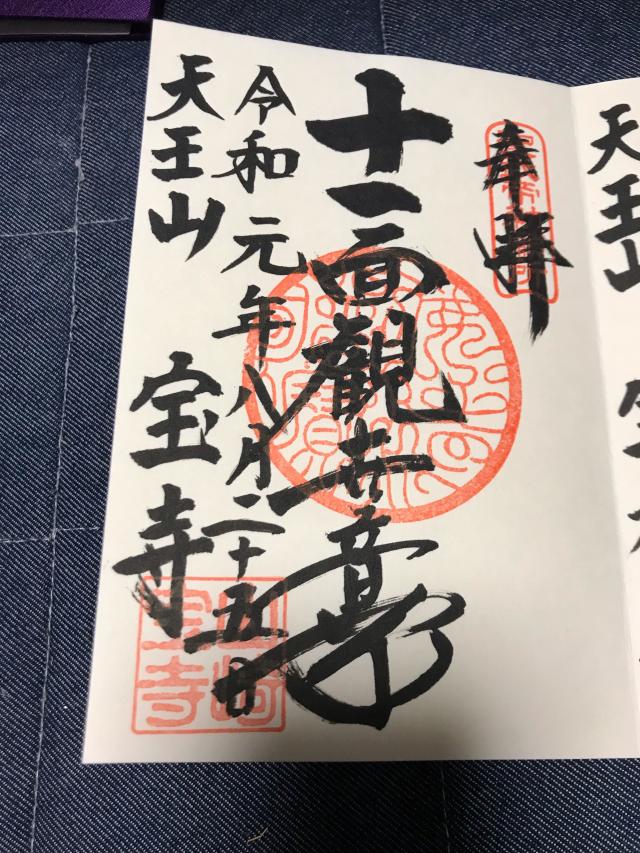 奉拝
十一面観世音
令和元年八月二十五日
天王山
宝寺
山崎
宝寺
天王山